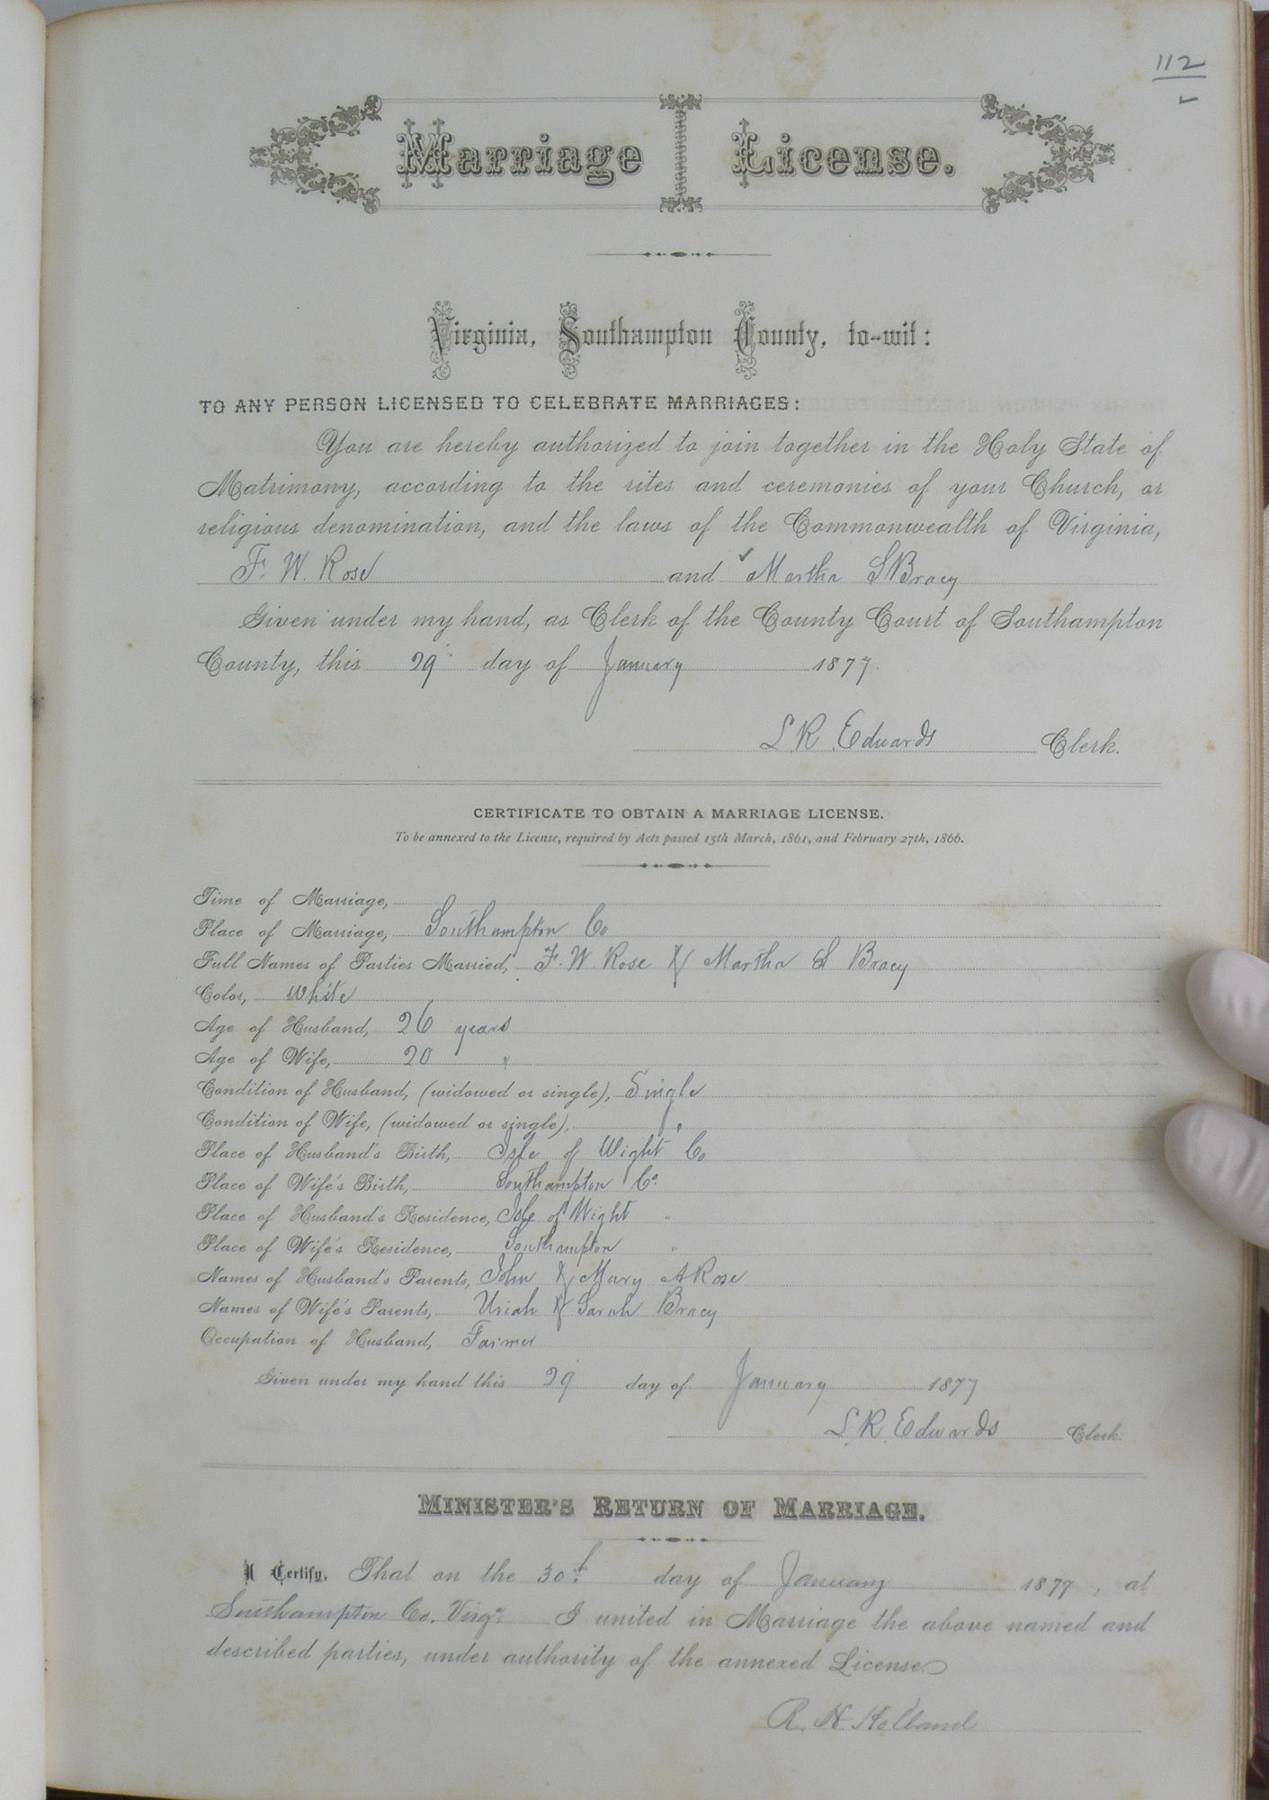 112
Marriage License.
Virginia, Southampton County, to-wit:
TO ANY PERSON LICENSED TO CELEBRATE MARRIAGES:
You are hereby authorized to join together in the Holy State of
Matrimony, according to the rites and ceremonies of your Church, or
religious denomination, and the laws of the Commonwealth of Virginia,
F. W. Rose and Martha S Bracy
Given under my hand, as Clerk of the County Court of Southampton
County, this 29 day of January 1877.
L. R. Edwards Clerk.
CERTIFICATE TO OBTAIN A MARRIAGE LICENSE.
To be annexed to the License, required by Acts passed 15th March, 1861, and February 27th, 1866.
Time of Marriage,
Place of Marriage, Southampton Co
Full Names of Parties Married, F. W. Rose & Martha S Bracy
Color, White
Age of Husband, 26 years
Age of Wife, 20 "
Condition of Husband, (widowed or single), Single
Condition of Wife, (widowed or single), "
Place of Husband's Birth, Isle of Wight Co
Place of Wife's Birth, Southampton Co.
Place of Husband's Residence, Isle of Wight "
Place of Wife's Residence, Southampton "
Names of Husband's Parents, John & Mary A Rose
Names of Wife's Parents, Uriah & Sarah Bracy
Occupation of Husband, Farmer
Given under my hand this 29 day of January 1877
L. R. Edwards Clerk.
MINISTER'S RETURN OF MARRIAGE.
I Certify, That on the 30th day of January 1877, at
Southampton Co. Virga I united in Marriage the above named and
described parties, under authority of the annexed License
R. H. Holland